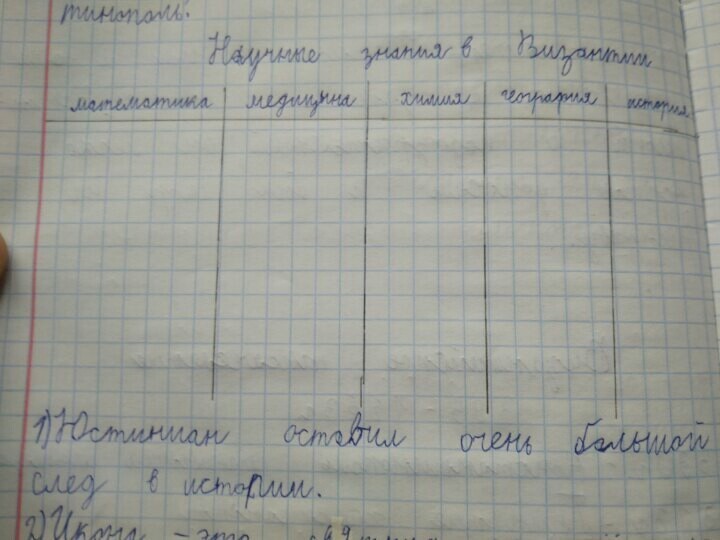 тинополь.
Научные знания в Византии
математика медицина химия география история
1) Юстиниан оставил очень большой
след в истории.
2) Икона - это